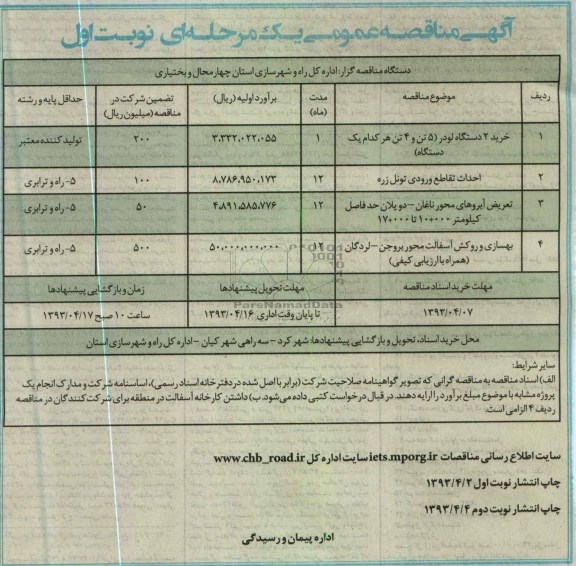 آگهی مناقصه عمومی یک مرحله‌ای نوبت اول
دستگاه مناقصه گزار: اداره کل راه و شهرسازی استان چهارمحال و بختیاری
ردیف موضوع مناقصه مدت (ماه) برآورد اولیه (ریال) تضمین شرکت در مناقصه (میلیون ریال) حداقل پایه و رشته
۱ خرید ۲ دستگاه لودر (۵ تن و ۴ تن هر کدام یک دستگاه) ۱ ۳،۳۳۲،۰۲۲،۰۵۵ ۲۰۰ تولید کننده معتبر
۲ احداث تقاطع ورودی تونل زره ۱۲ ۸،۷۸۶،۹۵۰،۱۷۳ ۱۰۰ ۵- راه و ترابری
۳ تعریض آبروهای محور ناغان – دوپلان حد فاصل کیلومتر ۱۰+۰۰۰ تا ۱۷+۰۰۰ ۱۲ ۴،۸۹۱،۵۸۵،۷۷۶ ۵۰ ۵- راه و ترابری
۴ بهسازی و روکش آسفالت محور بروجن – لردگان (همراه با ارزیابی کیفی) ۱۲ ۵۰،۰۰۰،۰۰۰،۰۰۰ ۵۰۰ ۵- راه و ترابری
مهلت خرید اسناد مناقصه مهلت تحویل پیشنهادها زمان و بازگشایی پیشنهادها
۱۳۹۳/۰۴/۰۷ تا پایان وقت اداری ۱۳۹۳/۰۴/۱۶ ساعت ۱۰ صبح ۱۳۹۳/۰۴/۱۷
ParsNamadData
محل خرید اسناد، تحویل و بازگشایی پیشنهادها: شهر کرد – سه راهی شهر کیان – اداره کل راه و شهرسازی استان
سایر شرایط:
الف) اسناد مناقصه به مناقصه گرانی که تصویر گواهینامه صلاحیت شرکت (برابر با اصل شده در دفترخانه اسناد رسمی)، اساسنامه شرکت و مدارک انجام یک
پروژه مشابه با موضوع مبلغ برآورد را ارایه دهند. در قبال درخواست کتبی داده می‌شود. ب) داشتن کارخانه آسفالت در منطقه برای شرکت کنندگان در مناقصه
ردیف ۴ الزامی است.
سایت اطلاع رسانی مناقصات iets.mporg.ir سایت اداره کل www.chb_road.ir
چاپ انتشار نوبت اول ۱۳۹۳/۴/۲
چاپ انتشار نوبت دوم ۱۳۹۳/۴/۴
اداره پیمان و رسیدگی